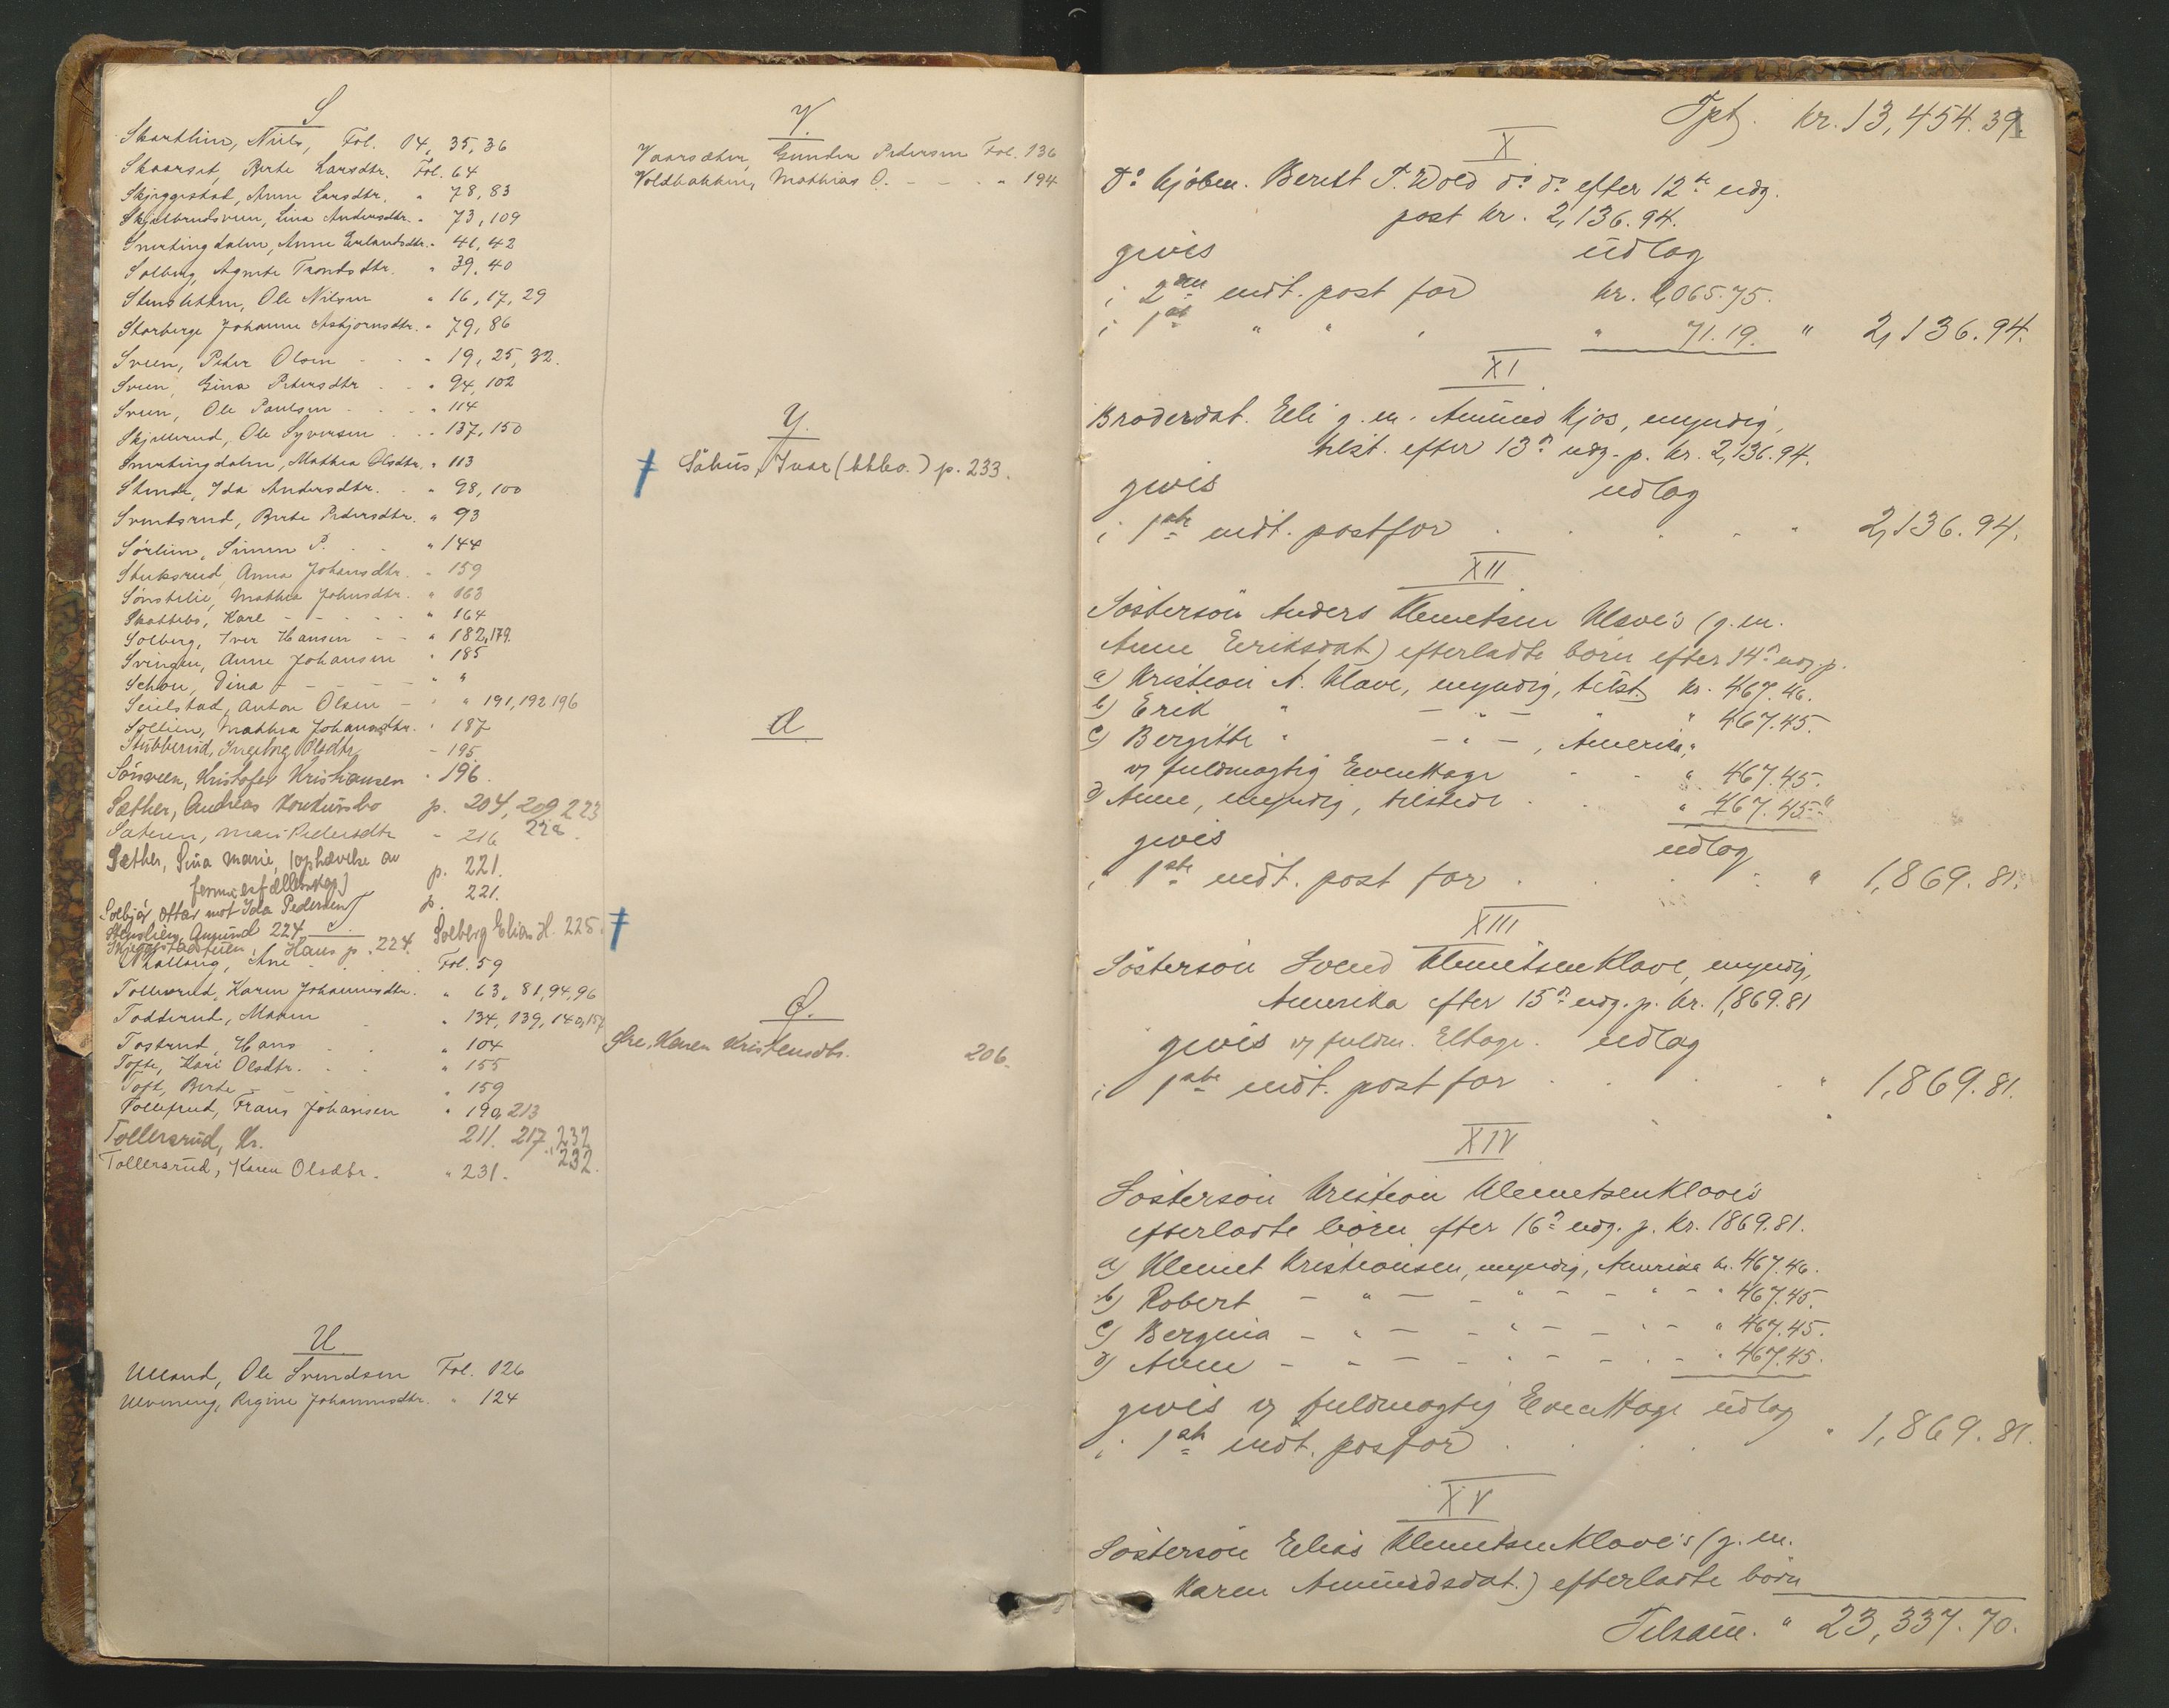 S
Skartlien, Niels, Fol. 14, 35, 36
Skaarset, Berte Larsdtr. Fol. 64
Skjeggestad, Anne Larsdtr. " 78, 83
Skjelbrudsveen, Lina Andersdtr. " 73, 109
Smertingdalen, Anne Erlandsdtr. " 41, 42
Solberg, Agnete Trondsdtr. " 39, 40
Stensletten, Ole Nilsen " 16, 17, 29
Storberge Johanne Asbjørnsdtr. " 79, 86
Sveen, Peter Olsen - - " 19, 25, 32.
Sveen, Gina Petersdtr - - " 94, 102
Sveen, Ole Paulsen - - " 114
Skjellerud, Ole Syversen - " 137, 150
Smertingdalen, Mathea Olsdtr. " 113
Stende, Ida Andersdtr. - " 98, 100
Svendsrud, Berte Pedersdtr. " 93
Sørlien, Simen P. - - " 144
Stuksrud, Anna Johansdtr. " 159
Sønstelie, Mathea Johnsdtr. " 163
Skattebo, Karl - - - - " 164
Solberg, Iver Hansen - - " 182, 179.
Svingen, Anne Johansen " 185
Schou, Dina - - - - - " "
Seielstad, Anton Olsen - " " 191, 192 196
Sollien, Mathea Johannsdtr. " 187
Stubberud, Ingeborg Olsdtr. - 195
Sørsveen, Kristofer Kristiansen " 196.
Sæther, Andreas Konkursbo p. 204, 209, 223
Sæteren, Mari Pedersdtr - 216 228.
Sæther, Sina Marie, (ophævelse av p. 221.
formuesfællesskap)
Solbjør, Ottar mot Ida Pedersen p. 221.
Stenslien, Amund 224. Solberg Elias H. 225.
Skjeggestadstuen, Hans p. 224.
Thallaug, Ane Fol. 59
Tollersrud, Karen Johannesdtr. " 63, 81, 94, 96
Todderud, Maren " 134, 139, 140, 157
Tostrud, Hans " 104
Tofte, Kari Olsdtr. " 155
Toft, Berte " 159
Tollefrud, Frans Johansen " 190, 213
Tollersrud, Kr. 211. 217, 232
Tollersrud, Karen Olsdtr. " 231. 232.
U.
Ulland, Ole Svendsen Fol. 126
Ulvening, Regine Johannesdtr. " 124
V.
Vaarsæter, Gunder Pedersen Fol. 136
Voldbakken, Mathias O. - - - " 194
Y.
Sähus, Ivar (kkbo.) p. 233.
Æ
Ø.
Øre, Karen Kristensdtr. 206.
Tpt. kr. 13,454.39.
X
Do kjøbm. Berett T. Wold do do efter 12te udg.
post kr. 2,136.94.
gives udlæg
i 2den indt. post for kr. 2,065.75.
i 1ste " " " " 71.19. " 2,136.94.
XI
Broderdat. Eli g. m. Amund Kjos, myndig,
tilst. efter 13de udg. p. kr. 2,136.94.
gives udlæg
i 1ste indt. post for . . . . " 2,136.94.
XII
Søstersøn Anders Klemetsen Klave's (g. m.
Anne Eriksdat) efterladte børn efter 14de udg p.
a) Kristian A. Klave, myndig, tilst. kr. 467.46.
b) Erik " - " - " " 467.45.
c) Bergitte " - " - , Amerika, "
v/ fuldmægtig Even Hage - - " 467.45.
d) Anne, myndig, tilstede . . " 467.45 "
gives udlæg
i 1ste indt. post for . . . " 1,869.81.
XIII
Søstersøn Svend Klemetsen Klave, myndig,
Amerika efter 15de udg. p. kr. 1,869.81
gives v/ fuldm. E Hage. udlæg
i 1ste indt. post for . . . " 1,869.81.
XIV
Søstersøn Kristian Klemetsen Klave's
efterladte børn efter 16de udg. p. kr. 1869.81.
a) Klemet Kristiansen, myndig, Amerika kr. 467.46.
b) Robert - " - - " - - " - " 467.45.
c) Bergina - " - - " - - " - " 467.45.
d) Anne - " - - " - - " - " 467.45.
gives v/ fuldmægtig Even Hage udlæg
i 1ste indt. post for . . . " 1,869.81.
XV
Søstersøn Elias Klemetsen Klave's (g. m.
Karen Amundsdat.) efterladte børn
Tilsam. " 23,337.70.